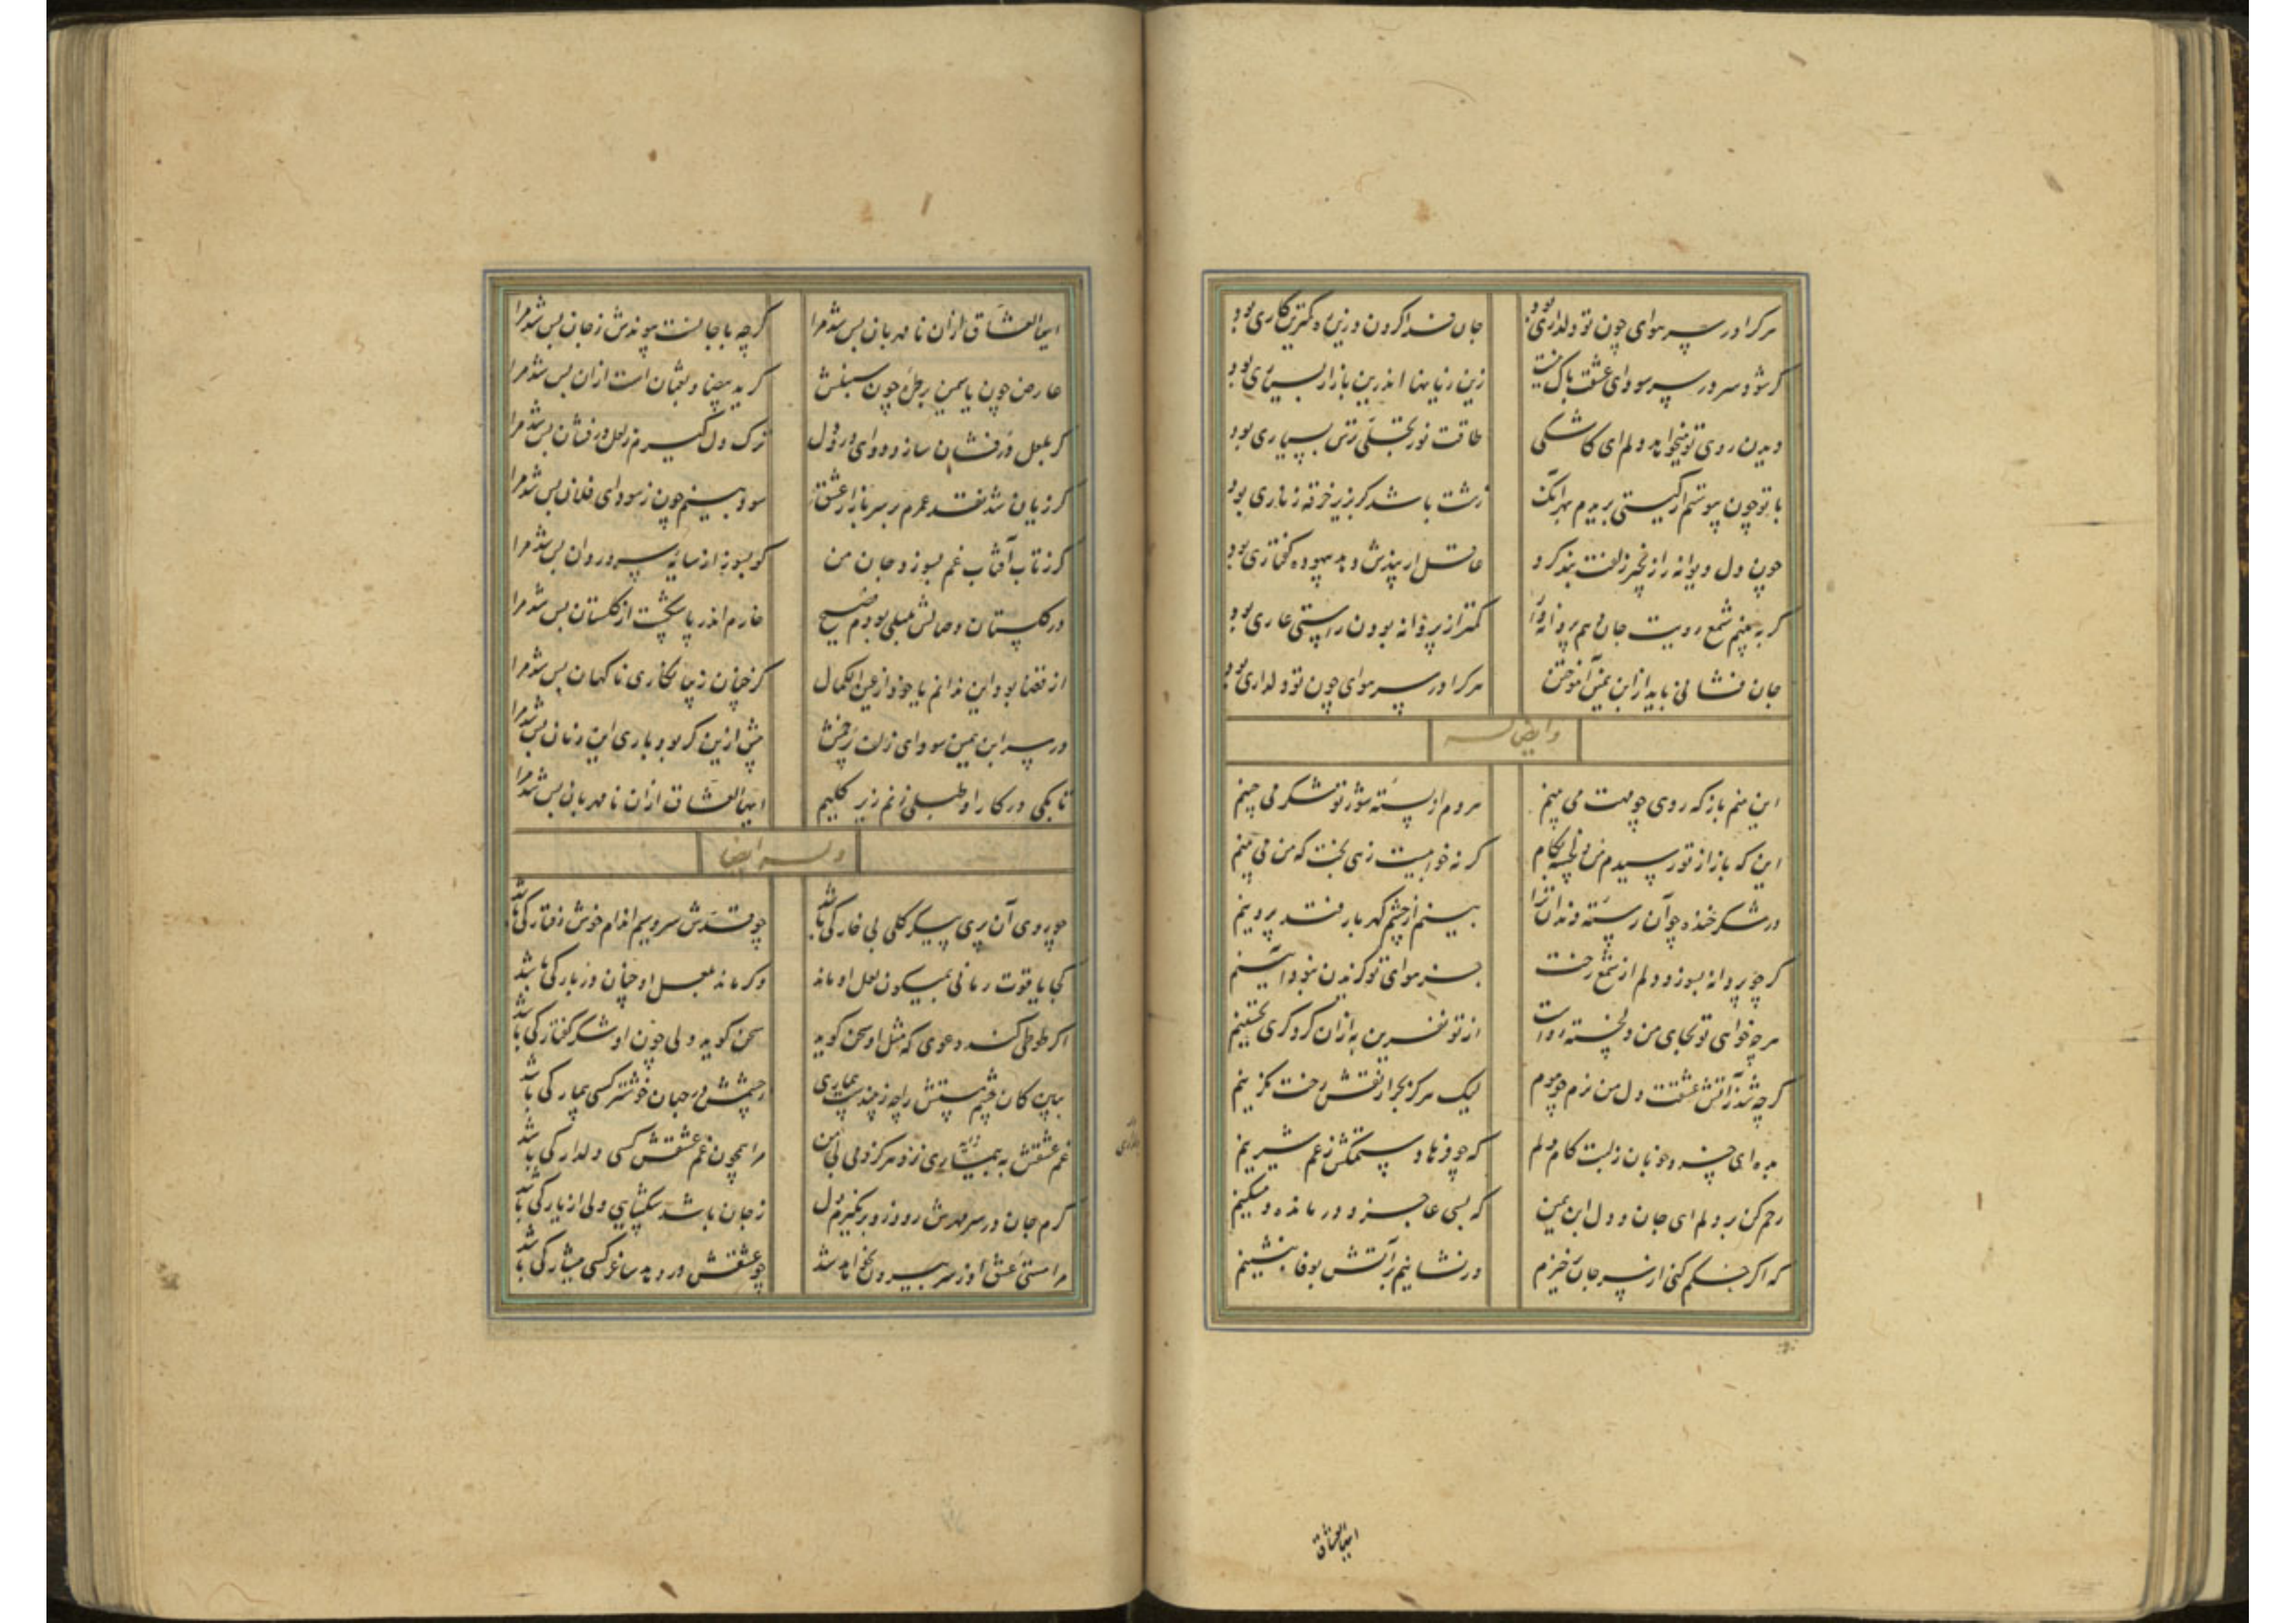 هرکرا در سر هوای چون تو دلداری بود جان فدا کردن درین ره کمترین کاری بود
گر شود سر در سر سودای عشقت باک نیست زین زیانها اندرین بازار بسیاری بود
دیدن روی تو میخواهد دلم ای کاشکی طاقت نور تجلی زش بسیاری بود
با تو چون پیوستم از گیستی بریدم بهر آنک زشت باشد کر بزیر خرقه زناری بود
چون دل دیوانه را زنجیر زلفت بند کرد عاقل ار پندش دهد بیهوده گفتاری بود
گر به بینم شمع رویت جان دهم پروانه وار کمتر از پروانه بودن راستی عاری بود
جان فشانی باید از ابن یمین آموختن هرکرا در سر هوای چون تو دلداری بود
و ایضا له
این منم باز که روی چو مهت می بینم هردم از پسته شور تو شکر می چینم
این که باز از تو رسیدم من دلخسته بکام گر نه خوابیست زهی بخت که من می بینم
در شکر خنده چو آن رسته دندان ترا بینم از چشم گهربار فتد پروینم
گر چو پروانه بسوزد دلم از شمع رخت جز هوای تو گزیدن نبود آئینم
هر چه خواهی تو بجای من دلخسته رواست از تو نفرین به از آن کز دگری تحسینم
گرچه شد ز آتش عشقت دل من نرم چو موم لیک هرگز بجز از نقش رخت نگزینم
بده ای خسرو خوبان ز لبت کام دلم که چو فرهاد ستمکش ز غم شیرینم
رحم کن بر دلم ای جان و دل ابن یمین که بسی عاجز و درمانده و مسکینم
که اگر حکم کنی از سر جان برخیزم ور نشانیم بر آتش بوفا بنشینم
ایها العشاق
ایها العشاق از آن نامهربان بس شد مرا گرچه با جانست پیوندش ز جان بس شد مرا
عارض چون یاسمین بر خط چون سنبلش گر ید بیضا و ثعبان است از آن بس شد مرا
گر بلعل درفشان سازد دوای درد دل ترک دل گیرم ز لعل درفشان بس شد مرا
گر زیان شد نقد عمرم بر سر بازار عشق سود بینم چون ز سودای فلان بس شد مرا
گر ز تاب آفتاب غم بسوزد جان من گو بسوز از سایه سرو روان بس شد مرا
در گلستان وصالش بلبلی بودم فصیح خارم اندر پا شکست از گلستان بس شد مرا
از قضا بود این ندانم یا خود از عین الکمال کز چنان زیبا نگاری ناگهان بس شد مرا
در سر ابن یمین سودای زلف و رخش پیش ازین گر بود باری این زمان بس شد مرا
تا بکی در کار او طبلی زنم زیر گلیم ایها العشاق از آن نامهربان بس شد مرا
وله ایضا
چو روی آن پری پیکر گلی بی خار کی باشد چو قدش سرو سیم اندام خوش رفتار کی باشد
کجا یاقوت رمانی بمیگون لعل او ماند وگر ماند بلعل او چنان دربار کی باشد
اگر طوطی کند دعوی که مثل او سخن گوید سخن گوید ولی چون او شکر گفتار کی باشد
ببین کان چشم مستش را چه زیبد بیماری ز چشمش در جهان خوشتر کسی بیمار کی باشد
غم عشقش به بیماری نزد هرگز دمی بی من مرا همچون غم عشقش کسی دلدار کی باشد
گرم جان در سر مهرش رود زو بر نگیرم دل ز جان باشد شکیبایی ولی از یار کی باشد
مرا مستی عشق او ز سر بیرون نخواهد شد چو عشقش در دهد ساغر کسی هشیار کی باشد